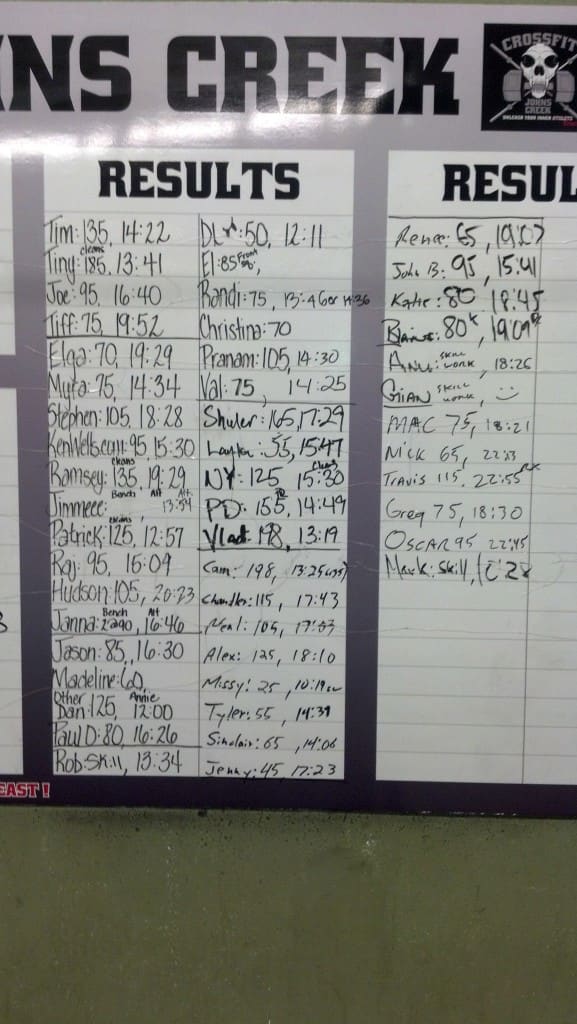 NS CREEK
CROSSFIT
JOHNS
CREEK
UNLEASH YOUR INNER ATHLETE
RESULTS
Tim: 135, 14:22
cleans
Tiny: 185, 13:41
Joe: 95, 16:40
Tiff: 75, 19:52
Elga: 70, 19:29
Myra: 75, 14:34
Stephen: 105, 18:28
95, 15:30
cleans
Ramsey: 135, 19:29
Bench Alt Alt.
Jimmeee: 13:54
cleans
Patrick: 125, 12:57
Raj: 95, 15:09
Hudson: 105, 20:23
Bench Alt
Janna: 16:46
Jason: 85, 16:30
Madeline: 60,
Other Annie
Dan: 125, 12:00
Paul D: 80, 16:26
Rob: Skill, 13:34
50, 12:11
El: 85 Front
Randi: 75,
Christina: 70
Pranam: 105, 14:30
Val: 75, 14:25
Shuler: 165, 17:29
Layla: 55, 15:47
clean
NY: 125 15:30
PD: 155, 14:49
Vlad: 13:19
Cam: 198, 13:25
Chandler: 115, 17:43
Neal: 105, 17:03
Alex: 125, 18:10
Missy: 25,
Tyler: 55, 14:39
Sinclair: 65, 14:06
Jenny: 45, 17:23
RESUL
Renee: 65, 19:07
John B: 95, 15:41
Katie: 80 18:45
80
skill
work, 18:26
GIAN skill
work, :)
MAC 75, 18:21
NICK 65, 22:53
TRAVIS 115, 22:55 RX
Greg 75, 18:30
OSCAR 95 22:45
Mark: Skill,
EAST!